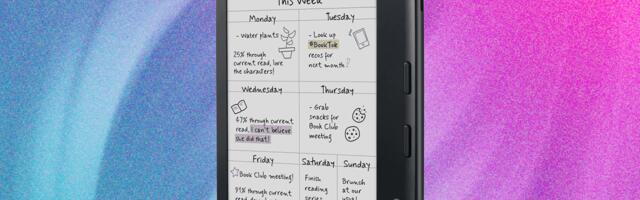 This Week
Monday
- Water plants
25% through
current read, love
the characters!
Tuesday
- Look up
#BookTok
recos for
next month!
Wednesday
67% through current
read, I can't believe
she did that!
Thursday
- Grab
snacks for
Book Club
meeting
Friday
Book Club meeting!
91% through current
Saturday
Finish
reading
series
Sunday
Brunch
at our
usual